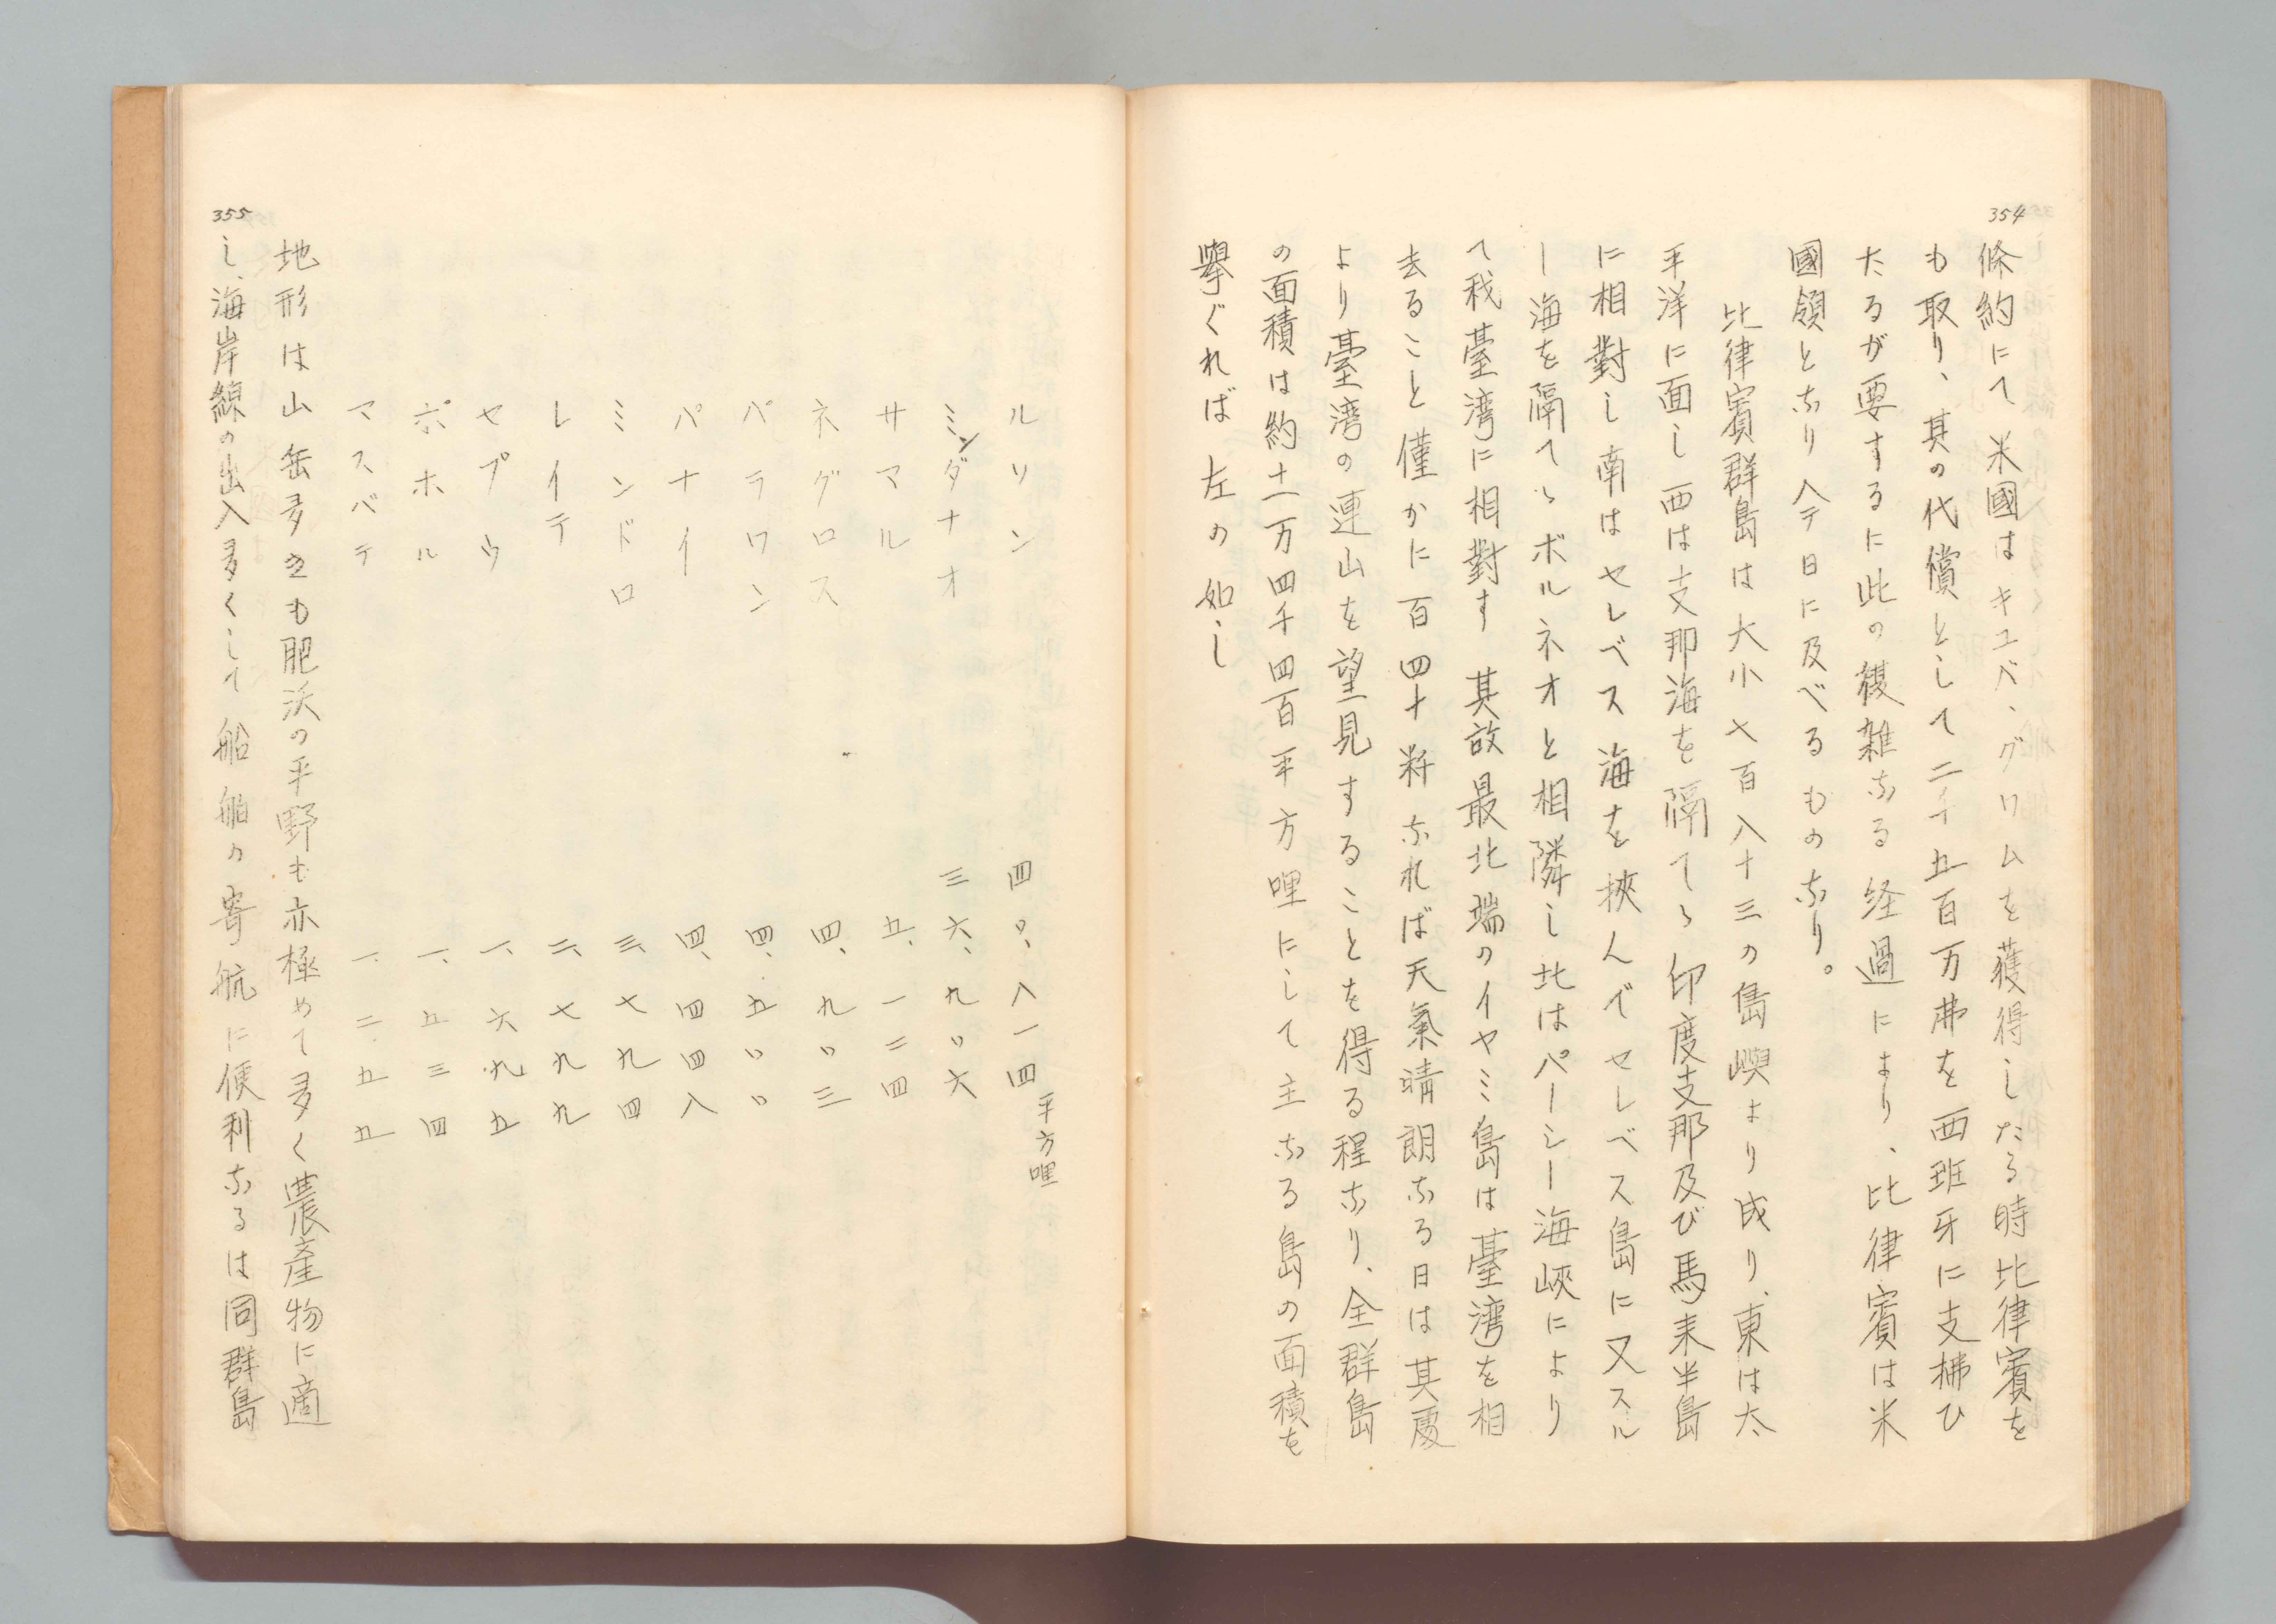 354
條約にて米國はキユバ、グワムを獲得したる時比律賓を
も取り、其の代償として二千五百万弗を西班牙に支拂ひ
たるが要するに此の複雑なる経過により、比律賓は米
國領となり今日に及べるものなり。
比律賓群島は大小七百八十三の島嶼より成り、東は太
平洋に面し西は支那海を隔てゝ印度支那及び馬来半島
に相對し南はセレベス海を挾んでセレベス島に又スル
ー海を隔てゝボルネオと相隣し北はパーシー海峽により
て我臺湾に相對す 其故最北端のイヤミ島は臺湾を相
去ること僅かに百四十粁なれば天氣晴朗なる日は其處
より臺湾の連山を望見することを得る程なり、全群島
の面積は約十一万四千四百平方哩にして主なる島の面積を
擧ぐれば左の如し
ルソン 四〇、八一四平方哩
ミンダナオ 三六、九〇六
サマル 五、一二四
ネグロス 四、九〇三
パラワン 四、五〇〇
パナイ 四、四四八
ミンドロ 三、七九四
レイテ 二、七九九
セブウ 一、六九五
ボホル 一、五三四
マスバテ 一、二五五
地形は山岳多きも肥沃の平野も亦極めて多く農産物に適
355
し、海岸線の出入多くして船舶の寄航に便利なるは同群島